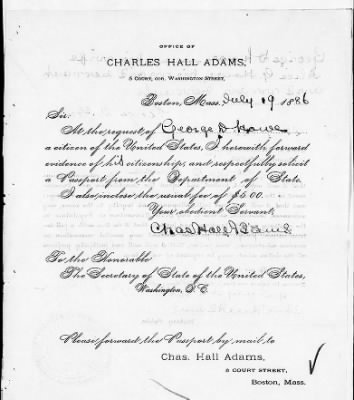 OFFICE OF
CHARLES HALL ADAMS,
5 COURT, COR. WASHINGTON STREET,
Boston, Mass. July 19 1886
Sir:
At the request of George D. Howe
a citizen of the United States, I herewith forward
evidence of his citizenship, and respectfully solicit
a Passport from the Department of State.
I also inclose the usual fee of $5.00.
Your obedient Servant,
Chas Hall Adams
To the Honorable
The Secretary of State of the United States,
Washington, D.C.
Please forward the Passport by mail to
Chas. Hall Adams,
5 COURT STREET,
Boston, Mass.